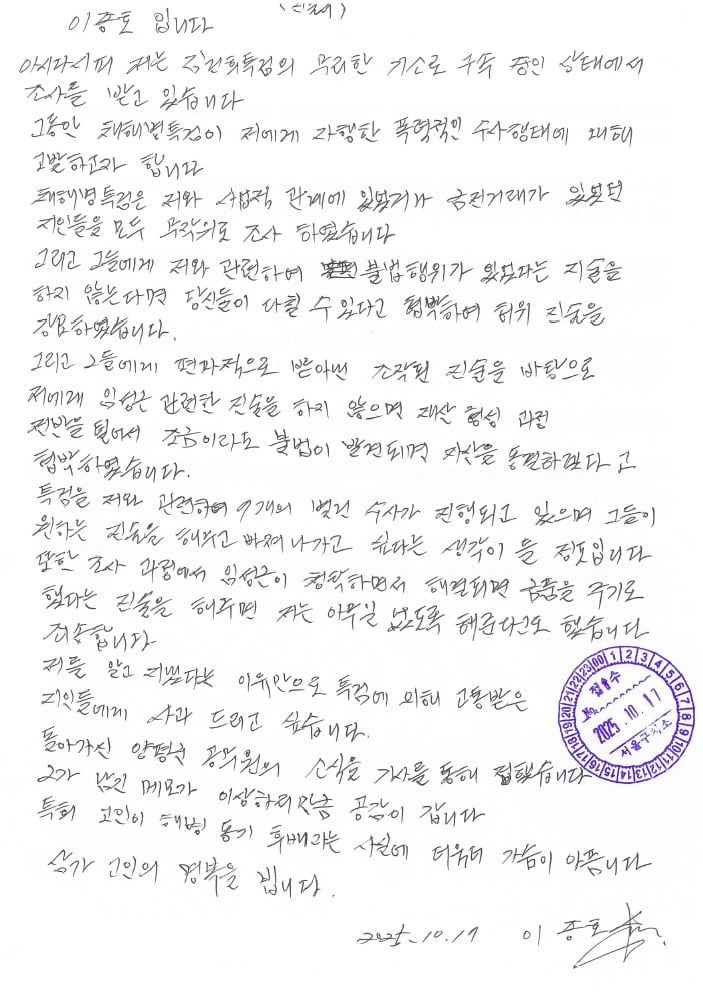 이종호 입니다
아시다시피 저는 김건희특검의 무리한 기소로 구속 중인 상태에서
조사를 받고 있습니다
그동안 채해병특검이 저에게 자행한 폭력적인 수사행태에 대해
고발하고자 합니다
채해병특검은 저와 사업적 관계에 있었거나 금전거래가 있었던
지인들을 모두 무작위로 조사 하였습니다
그리고 그들에게 저와 관련하여 불법행위가 있었다는 진술을
하지 않는다면 당신들이 다칠 수 있다고 협박하여 허위 진술을
강요하였습니다.
그리고 그들에게 편파적으로 받아낸 조작된 진술을 바탕으로
저에게 임성근 관련한 진술을 하지 않으면 재산 형성 과정
전반을 털어서 조금이라도 불법이 발견되면 자산을 동결하겠다고
협박하였습니다.
특검을 저와 관련하여 9개의 별건 수사가 진행되고 있으며 그들이
원하는 진술을 해주고 빠져나가고 싶다는 생각이 들 정도입니다
또한 조사 과정에서 임성근이 청탁하면서 해결되면 금품을 주기로
했다는 진술을 해주면 저는 아무일 없도록 해준다고도 했습니다
죄송합니다
저를 알고 지냈다는 이유만으로 특검에 의해 고통받은
지인들에게 사과 드리고 싶습니다.
돌아가신 양평군 공무원의 소식을 기사를 통해 접했습니다
그가 남긴 메모가 이상하리만큼 공감이 갑니다
특히 고인이 해병 동기 후배라는 사실에 더욱더 가슴이 아픕니다
삼가 고인의 명복을 빕니다.
2025.10.17 이종호
접수
No.
2025.10.17
서울구치소